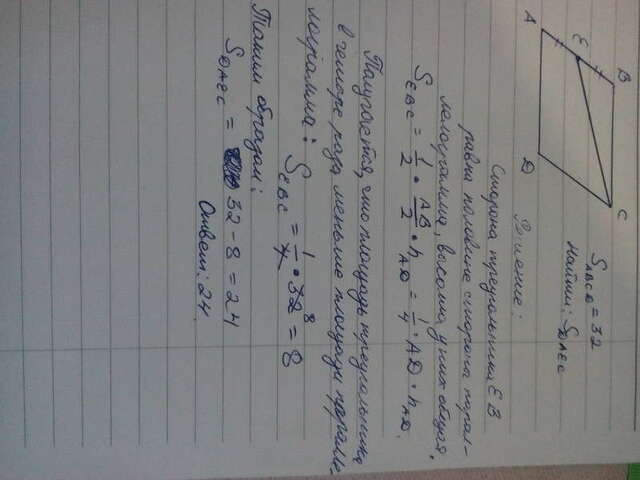 A
E
B
C
D
S ABCD = 32
Найти: S DAEC
Решение:
Сторона треугольника EB
равна половине стороны парал-
лелограмма, высота у них общая.
S EBC = 1/2 · AB/2 · h AD = 1/4 · AD · h AD.
Получается, что площадь треугольника
в четыре раза меньше площади паралле-
лограмма: S EBC = 1/4 · 32 8 = 8
Таким образом:
S DAEC = 32 - 8 = 24
Ответ: 24